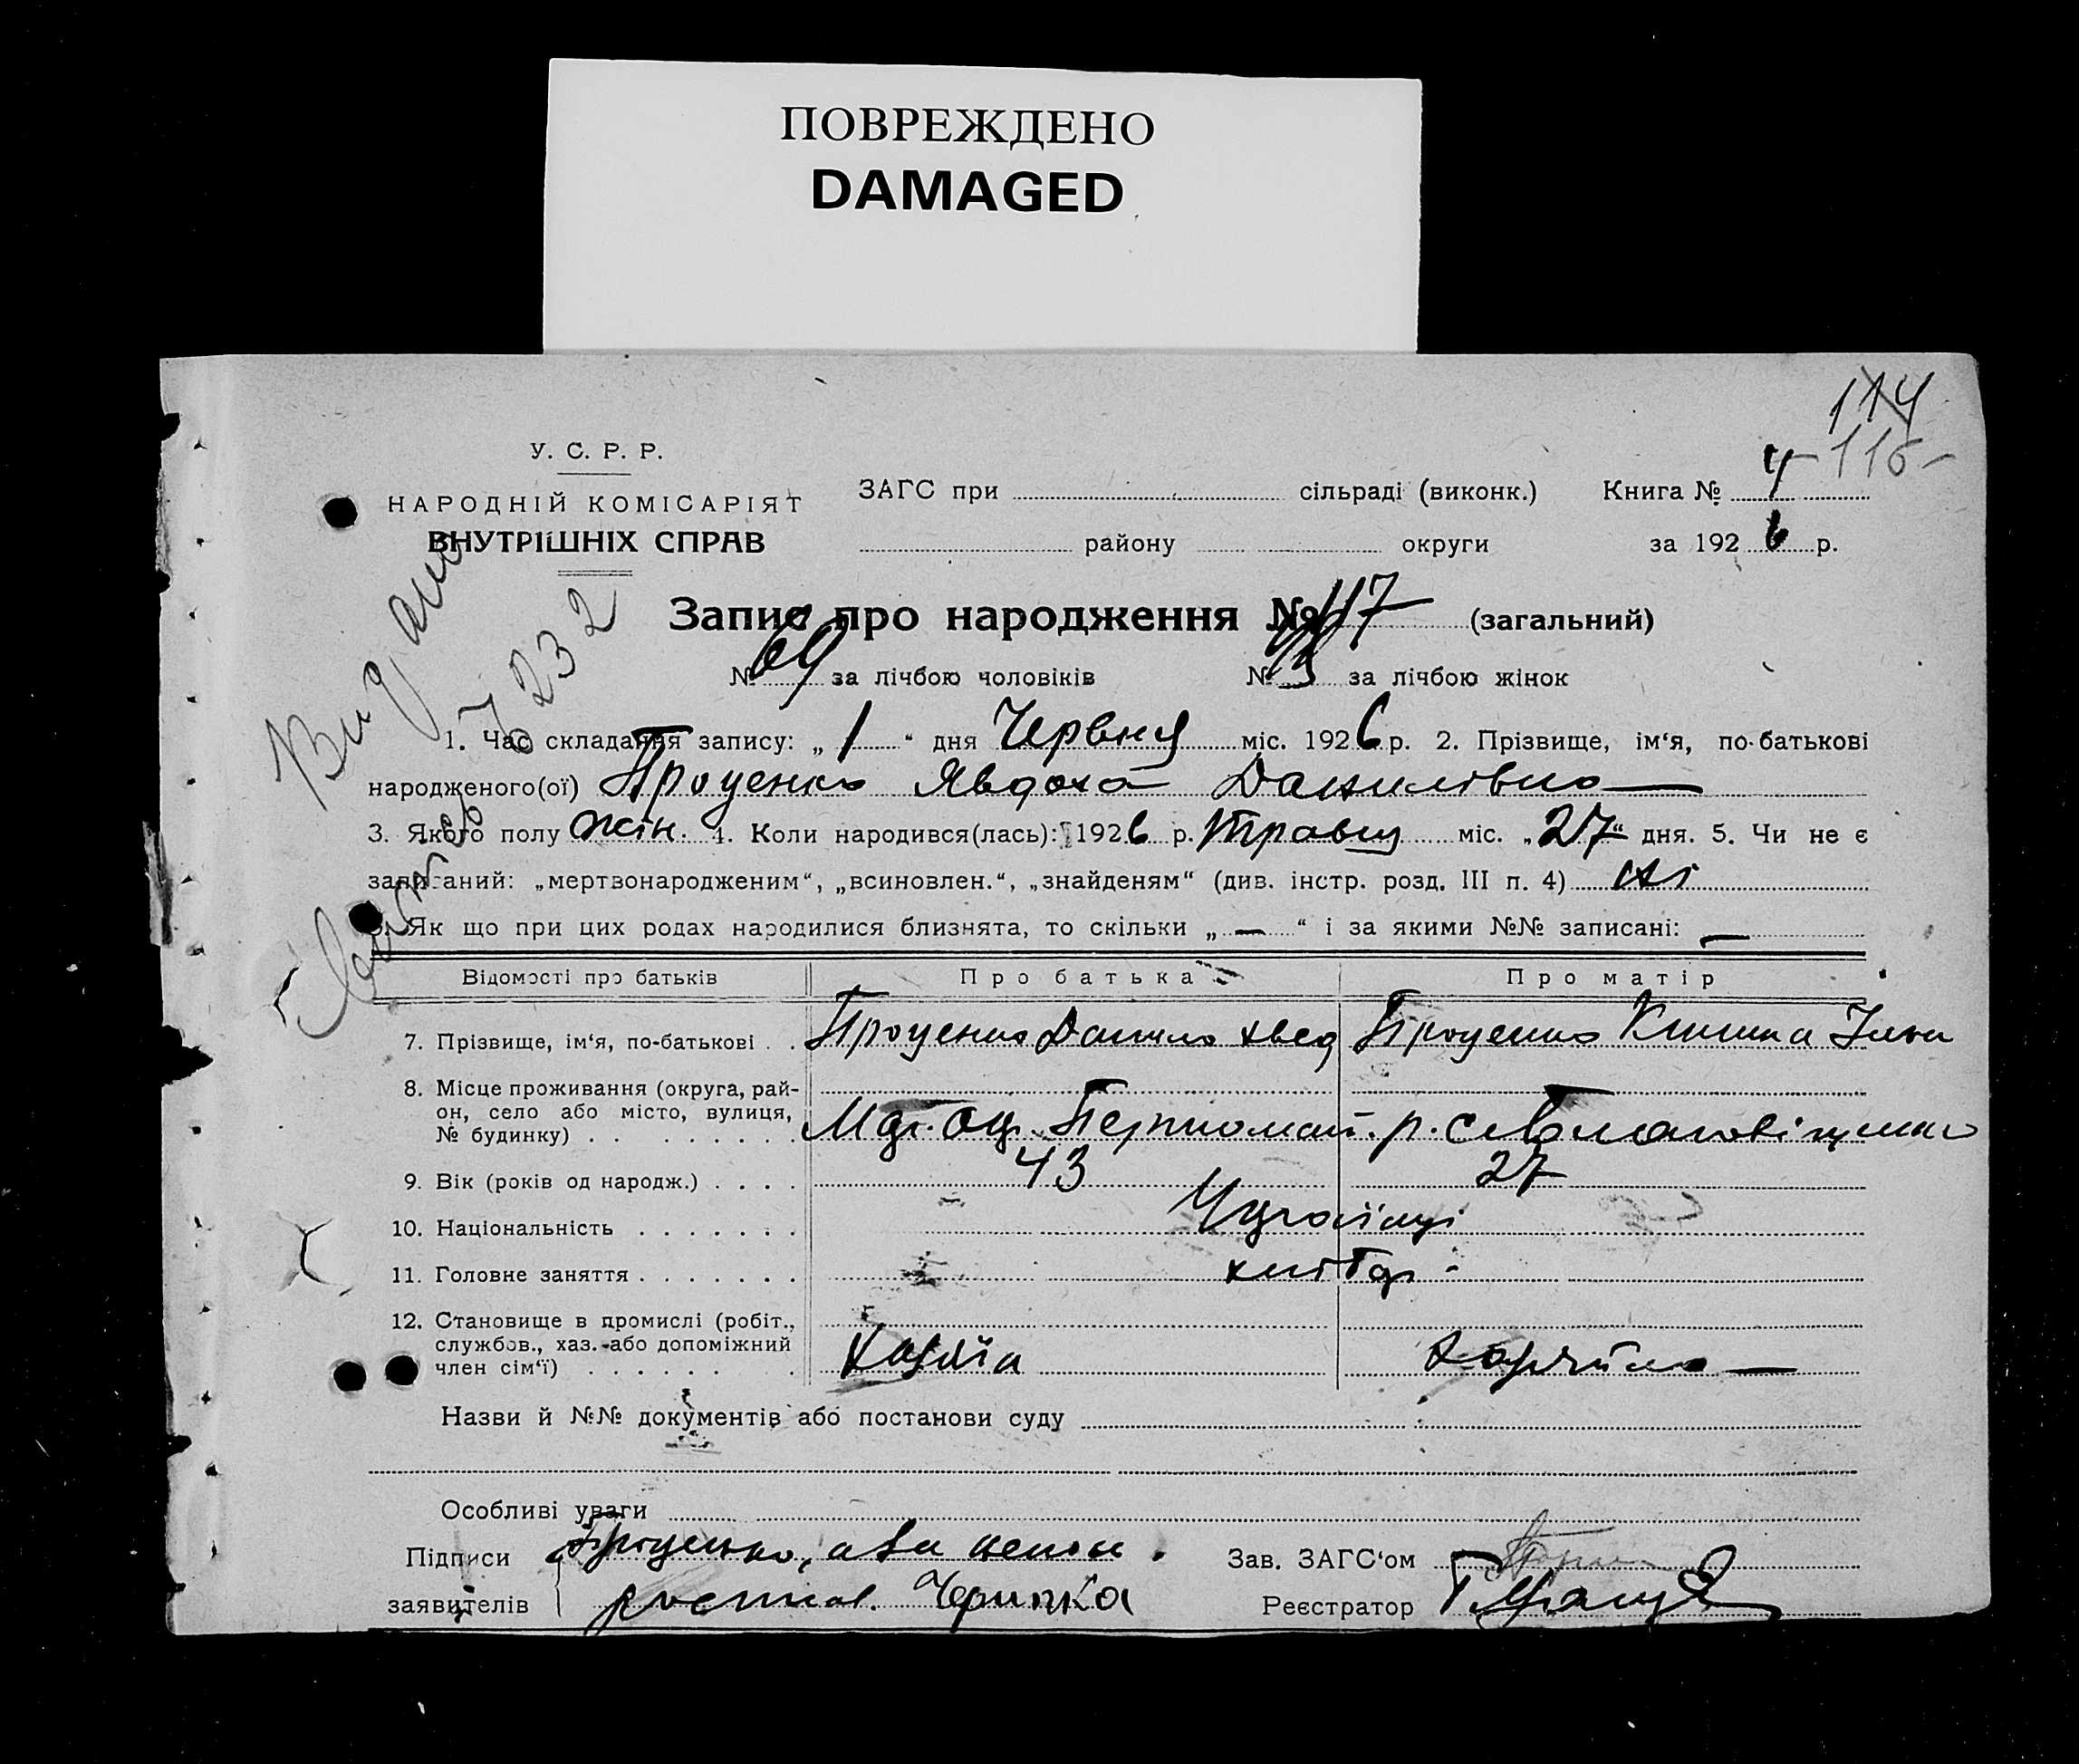 ПОВРЕЖДЕНО
DAMAGED
114
116
У. С. Р. Р.
НАРОДНІЙ КОМІСАРІЯТ
ВНУТРІШНІХ СПРАВ
ЗАГС при сільраді (виконк.) Книга № 4
району округи за 1926 р.
Видано
Запис про народження № 117 (загальний)
№ 69 за лічбою чоловіків № за лічбою жінок
1. Час складання запису: „1“ дня Червня міс. 1926 р. 2. Прізвище, ім‘я, по-батькові
народженого(ої) Проценко Явдоха Данилівна
3. Якого полу жін. 4. Коли народився(лась): 1926 р. Травня міс. „27“ дня. 5. Чи не є
записаний: „мертвонародженим“, „всиновлен.“, „знайденям“ (див. інстр. розд. III п. 4) ні
6. Як що при цих родах народилися близнята, то скільки „—“ і за якими №№ записані: —
Відомості про батьків Про батька Про матір
7. Прізвище, ім‘я, по-батькові . . Проценко Данило Хвед Проценко Килина
8. Місце проживання (округа, рай-
он, село або місто, вулиця,
№ будинку) . . . . . . . . . . Первомай. р.
9. Вік (років од народж.) . . . . 43 27
10. Національність . . . . . . . Українці
11. Головне заняття . . . . . . . хлібор
12. Становище в промислі (робіт.,
службов., хаз. або допоміжний
член сім‘ї) . . . . . . . Хазяїн Хазяйка —
Назви й №№ документів або постанови суду
Особливі уваги
Підписи Проценко, а за непис.
заявителів розпис. Черипка
Зав. ЗАГС‘ом
Реєстратор